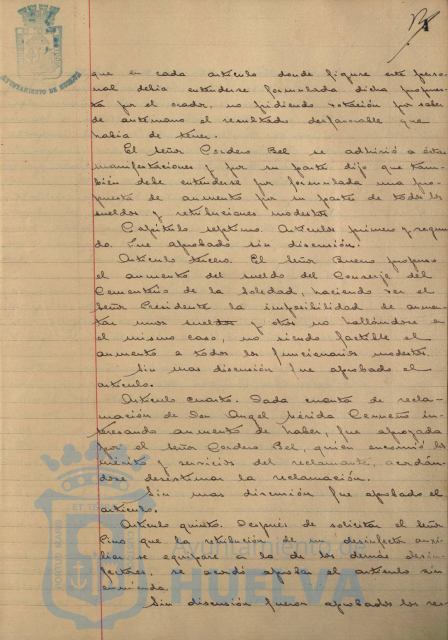 AYUNTAMIENTO DE HUELVA
que en cada artículo donde figure este perso-
nal debia entenderse formulada dicha propues-
ta por el orador, no pidiendo votación por saber
de antemano el resultado desfavorable que
habia de tener.
El Señor Cordero Bel se adhirió a estas
manifestaciones y por su parte dijo que tam-
bién debe entenderse por formulada una pro-
puesta de aumento por su parte de todos los
sueldos y retribuciones modestos
Capítulo septimo. Artículos primero y segun-
do. Fue aprobado sin discusión.
Artículo tercero. El Señor Bueno propuso
el aumento del sueldo del Conserje del
Cementerio de la Soledad, haciendo ver el
Señor Presidente la imposibilidad de aumen-
tar unos sueldos y otros no hallándose en
el mismo caso, no siendo factible el
aumento a todos los funcionarios modestos.
Sin mas discusión fue aprobado el
artículo.
Artículo cuarto. Dada cuenta de recla-
mación de Don Angel Mérida Cermeño in-
teresando aumento de haber, fue apoyada
por el Señor Cordero Bel, quien encomió los
méritos y servicios del reclamante, acordán-
dose desestimar la reclamación.
Sin mas discusión fue aprobado el
artículo.
Artículo quinto. Después de solicitar el Señor
Pino que la retribución de un desinfector auxi-
liar se equipare a la de los demás desin-
fectores, se acordó aprobar el artículo sin
enmienda.
Sin discusión fueron aprobados los res-
Ayuntamiento de
HUELVA